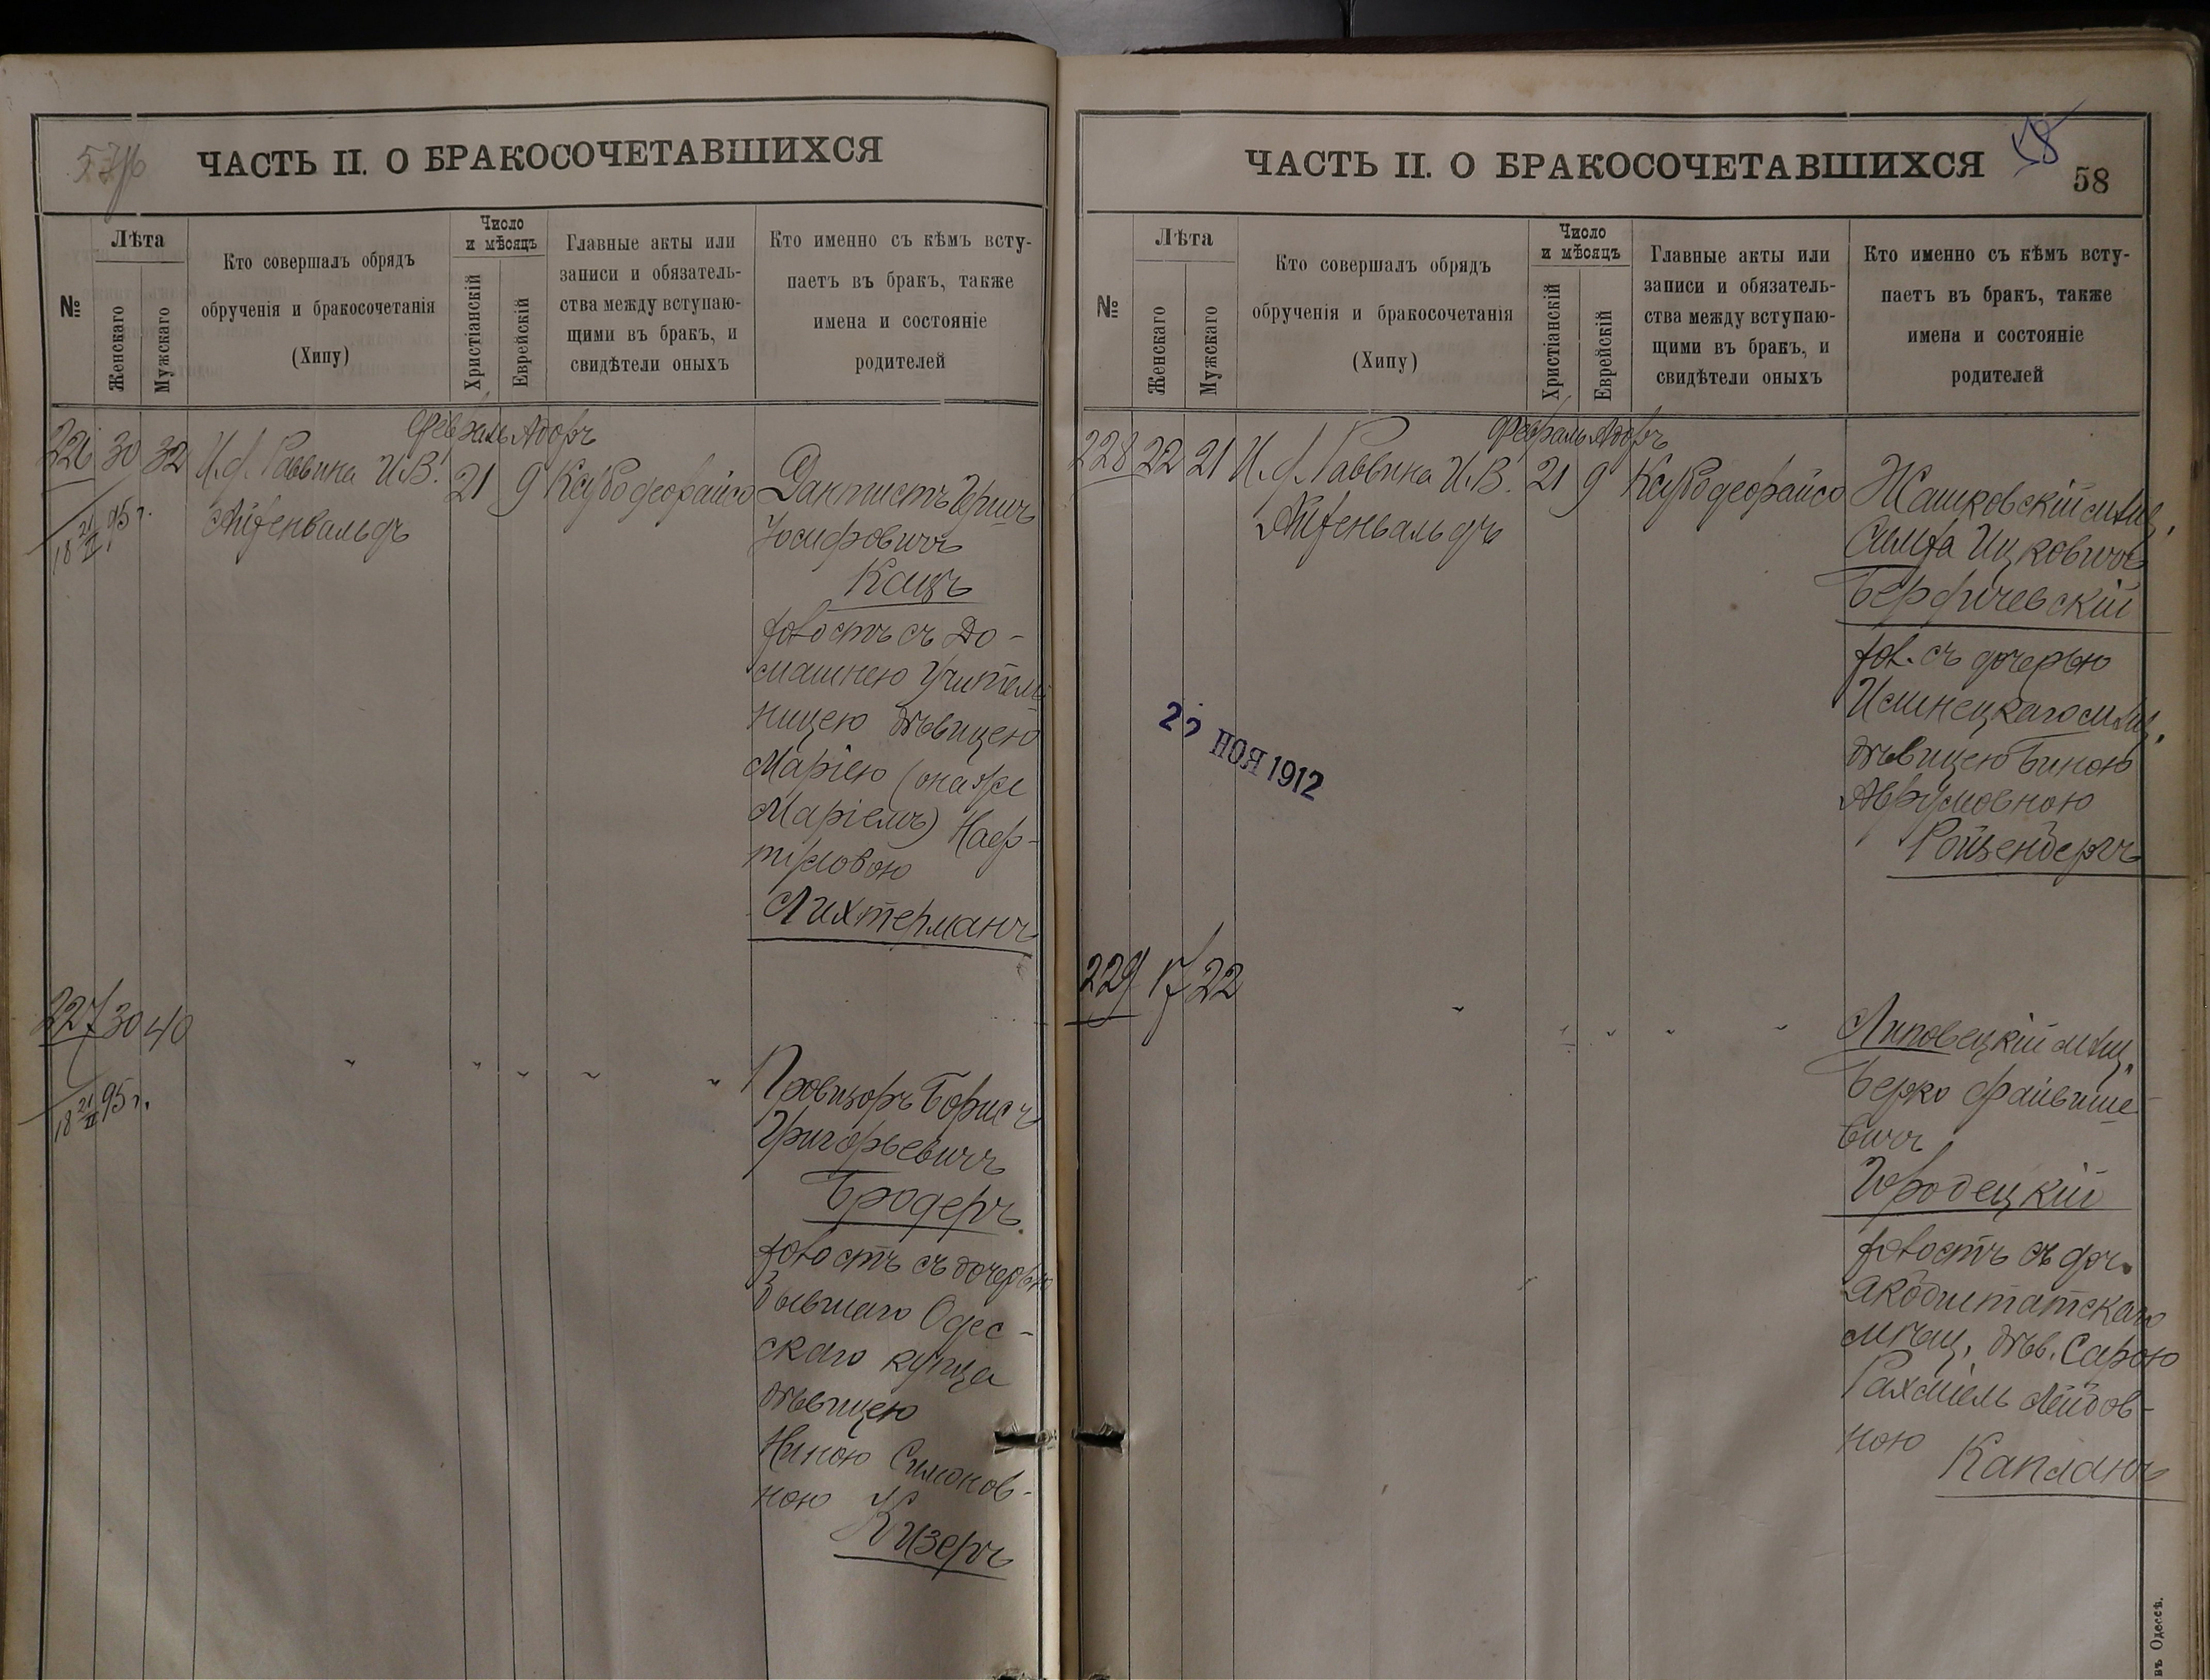 57/б
ЧАСТЬ II. О БРАКОСОЧЕТАВШИХСЯ
№
Лѣта
Женскаго
Мужскаго
Кто совершалъ обрядъ
обрученія и бракосочетанія
(Хипу)
Число
и мѣсяцъ
Христіанскій
Еврейскій
Главные акты или
записи и обязатель-
ства между вступаю-
щими въ бракъ, и
свидѣтели оныхъ
Кто именно съ кѣмъ всту-
паетъ въ бракъ, также
имена и состояніе
родителей
Февраль Адоръ
226 30 32 И.д. Раввина И.В. 21 9
Айзенвальдъ
18 21/II 95 г.
Дантистъ Гершъ
Іосифовичъ
Кацъ
холостъ съ До-
машнею Учитель
ницею дѣвицею
Маріею (она же
Маріемъ) Наф-
туловою
Лихтерманъ
227 30 40
18 21/II 95 г.
Провизоръ Борисъ
Григорьевичъ
Бродеръ.
холостъ съ дочерью
бывшаго Одес-
скаго купца
дѣвицею
Ниною Симонов-
ною
Кизеръ
ЧАСТЬ II. О БРАКОСОЧЕТАВШИХСЯ
58
58
№
Лѣта
Женскаго
Мужскаго
Кто совершалъ обрядъ
обрученія и бракосочетанія
(Хипу)
Число
и мѣсяцъ
Христіанскій
Еврейскій
Главные акты или
записи и обязатель-
ства между вступаю-
щими въ бракъ, и
свидѣтели оныхъ
Кто именно съ кѣмъ всту-
паетъ въ бракъ, также
имена и состояніе
родителей
Февраль Адоръ
228 22 21 И.д. Раввина И.В. 21 9
Айзенвальдъ
Жашковскій мѣщ.
Симха Ицковичъ
Бердичевскій
хол. съ дочерью
Илинецкаго мѣщ.
дѣвицею Биною
Аврумовною
Ройзенбергъ
22 НОЯ 1912
229 17 22
Липовецкій мѣщ.
Берко Файвише-
вичъ
Городецкій
холостъ съ доч.
Акбштатскаго
мѣщ. дѣв. Сарою
Рахміель Лейбов-
ною
Капланъ
въ Одессѣ.